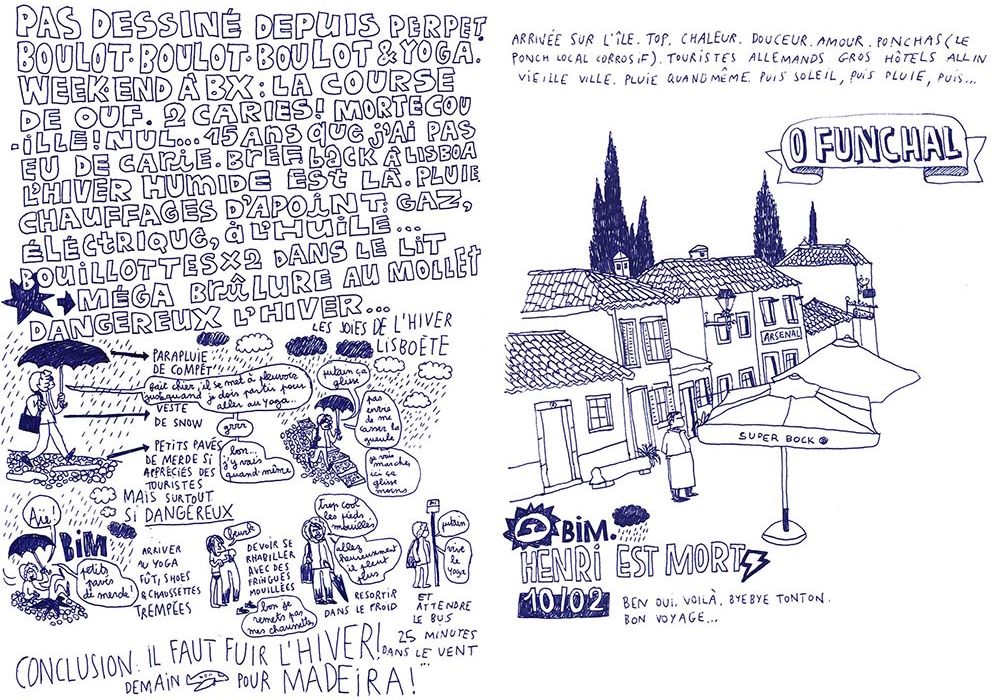 PAS DESSINÉ DEPUIS PERPET.
BOULOT. BOULOT. BOULOT & YOGA.
WEEK-END À BX : LA COURSE
DE OUF. 2 CARIES! MORTECOU
-ILLE! NUL... 15 ANS QUE J'AI PAS
EU DE CARIE. BREF. BACK À LISBOA
L'HIVER HUMIDE EST LÀ. PLUIE
CHAUFFAGES D'APOINT: GAZ,
ÉLÉCTRIQUE, À L'HUILE...
BOUILLOTTES X2 DANS LE LIT
MÉGA BRÛLURE AU MOLLET
DANGEREUX L'HIVER...
LES JOIES DE L'HIVER
LISBOÈTE
PARAPLUIE
DE COMPET'
fait chier, il se met à pleuvoir
juste quand je dois partir pour
aller au Yoga.
VESTE
DE SNOW
grrr
PETITS PAVÉS
DE MERDE SI
APPRÉCIÉS DES
TOURISTES
MAIS SURTOUT
SI DANGEREUX
bon...
j'y vais
quand-même
putain ça
glisse
pas
envie
de me
casser la
gueule
je vais
marcher
ici ça
glisse
moins
Aïe!
BIM
petits
pavés
de merde!
ARRIVER
AU YOGA
FÛT, SHOES
& CHAUSSETTES
TREMPÉES
beurk
DEVOIR SE
RHABILLER
AVEC DES
FRINGUES
MOUILLÉES
bon je
remets pas
mes chaussettes
trop cool
les pieds
mouillés
allez
heureusement
il pleut
plus
RESORTIR
DANS LE FROID
putain
vive
le
yoga
ET
ATTENDRE
LE BUS
25 MINUTES
DANS LE VENT
...
CONCLUSION: IL FAUT FUIR L'HIVER!
DEMAIN POUR MADEIRA!
ARRIVÉE SUR L'ÎLE. TOP. CHALEUR. DOUCEUR. AMOUR. PONCHAS (LE
PONCH LOCAL CORROSIF). TOURISTES ALLEMANDS. GROS HÔTELS ALL IN
VIEILLE VILLE. PLUIE QUAND MÊME. PUIS SOLEIL, PUIS PLUIE, PUIS...
O FUNCHAL
ARSENAL
SUPER BOCK
BIM.
HENRI EST MORT
10/02
BEN OUI. VOILÀ, BYEBYE TONTON.
BON VOYAGE...